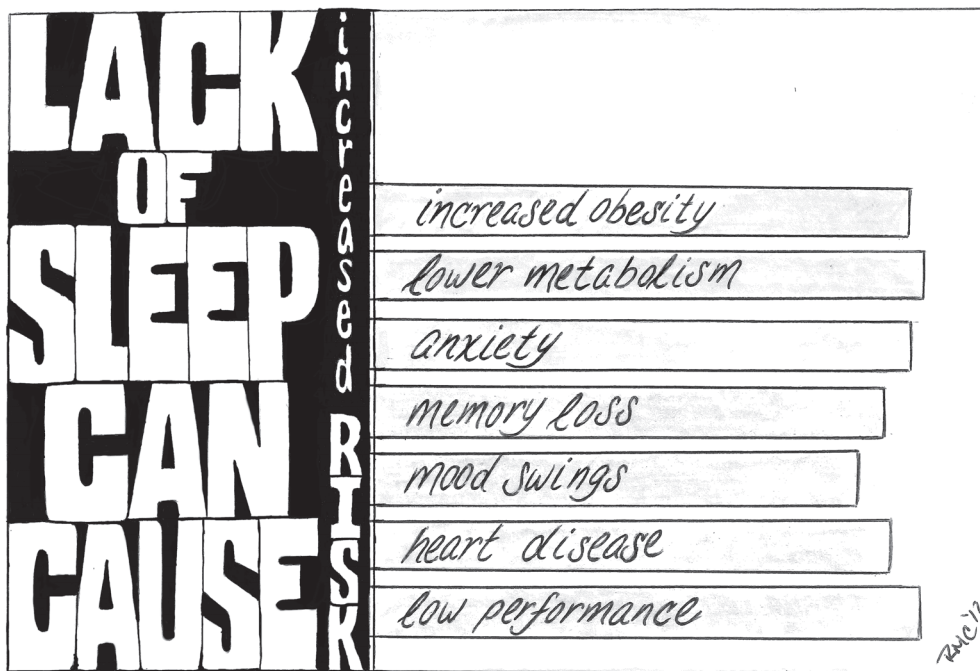 LACK
OF
SLEEP
CAN
CAUSE
increased RISK
increased obesity
lower metabolism
anxiety
memory loss
mood swings
heart disease
low performance
RMC'12